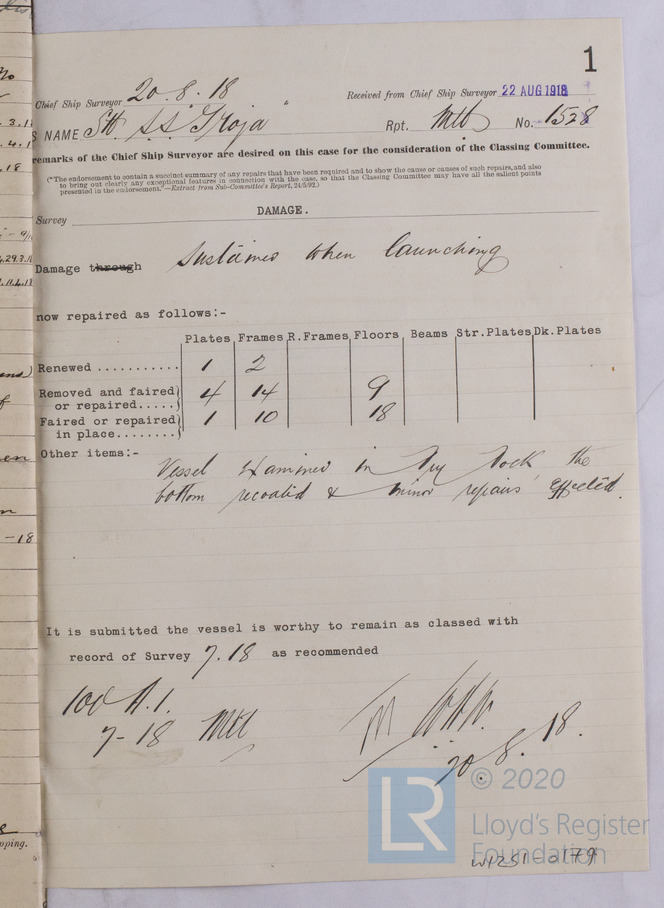 1
Chief Ship Surveyor 20.8.18 Received from Chief Ship Surveyor 22 AUG 1918
S NAME SS Troja Rpt. Mtl No. 1528
remarks of the Chief Ship Surveyor are desired on this case for the consideration of the Classing Committee.
(*The endorsement to contain a succinct summary of any repairs that have been required and to show the cause or causes of such repairs, and also
to bring out clearly any exceptional features in connection with the case, so that the Classing Committee may have all the salient points
presented in the endorsement."—Extract from Sub-Committee's Report, 24/5/92.)
Survey DAMAGE.
Damage through sustained when launching
now repaired as follows:-
Plates Frames R.Frames Floors Beams Str.Plates Dk.Plates
Renewed ........... 1 2
Removed and faired) 4 14 9
or repaired.....)
Faired or repaired) 1 10 18
in place........)
Other items:-
Vessel examined in Dry Dock the
bottom recoated & minor repairs effected.
It is submitted the vessel is worthy to remain as classed with
record of Survey 7.18 as recommended
100 A.1.
7-18 Mtl
20.8.18.
LR
© 2020
Lloyd's Register
Foundation
W1251-0179